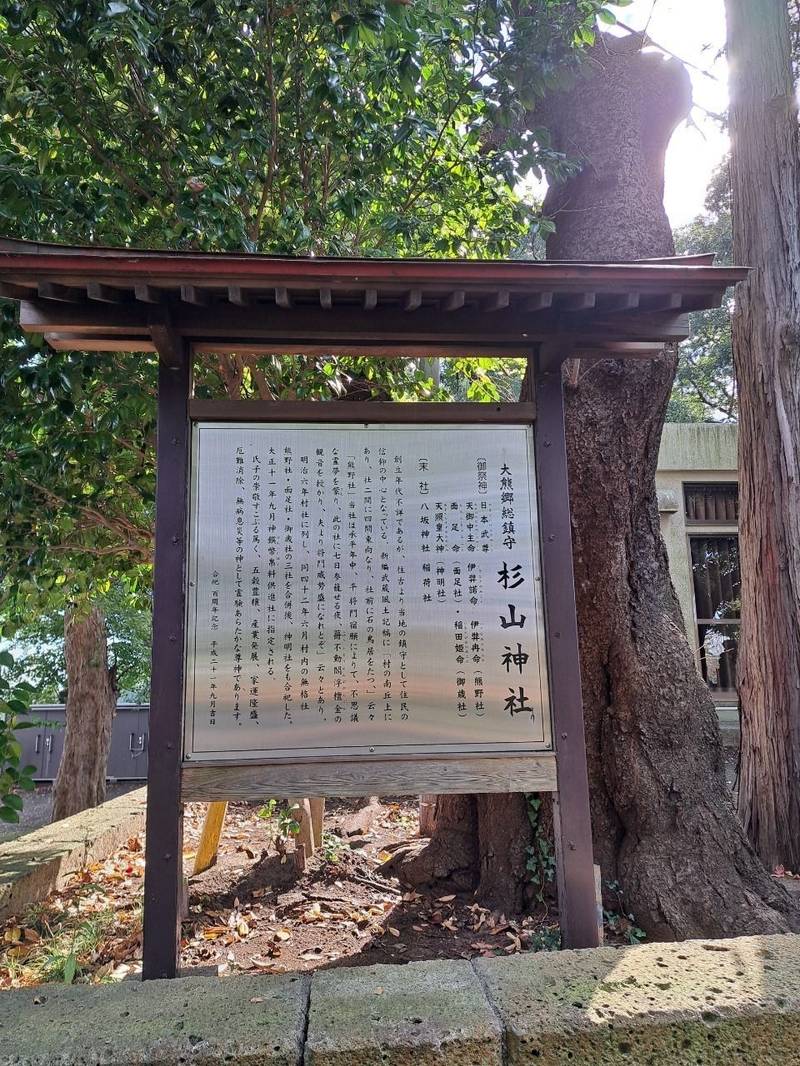 大熊郷総鎮守 杉山神社
〔御祭神〕 日本武尊
天御中主命 伊弉諾命 伊弉冉命（熊野社）
面足命（面足社）・稲田姫命（御歳社）
天照皇大神（神明社）
〔末社〕 八坂神社 稲荷社
創立年代不詳であるが、往古より当地の鎮守として住民の
信仰の中心となっている。新編武蔵風土記稿に「村の南丘上に
あり、社二間に四間東向なり、社前に石の鳥居をたつ」云々
「熊野社」当社は承平年中、平将門宿願によりて、不思議
な霊夢を蒙り、此の社に七日参籠せる夜、
観音を授かり、夫より将門威勢盛になれとぞ」云々とあり。
明治六年村社に列し、同四十二年六月村内の無格社
熊野社・面足社・御歳社の三社を合併後、神明社をも合祀した。
大正十一年九月神饌幣帛料供進社に指定される。
氏子の崇敬すこぶる篤く、五穀豊穣、産業発展、家運隆盛、
厄難消除、無病息災等の神として霊験あらたかな尊神であります。
合祀 百周年記念 平成二十一年九月吉日